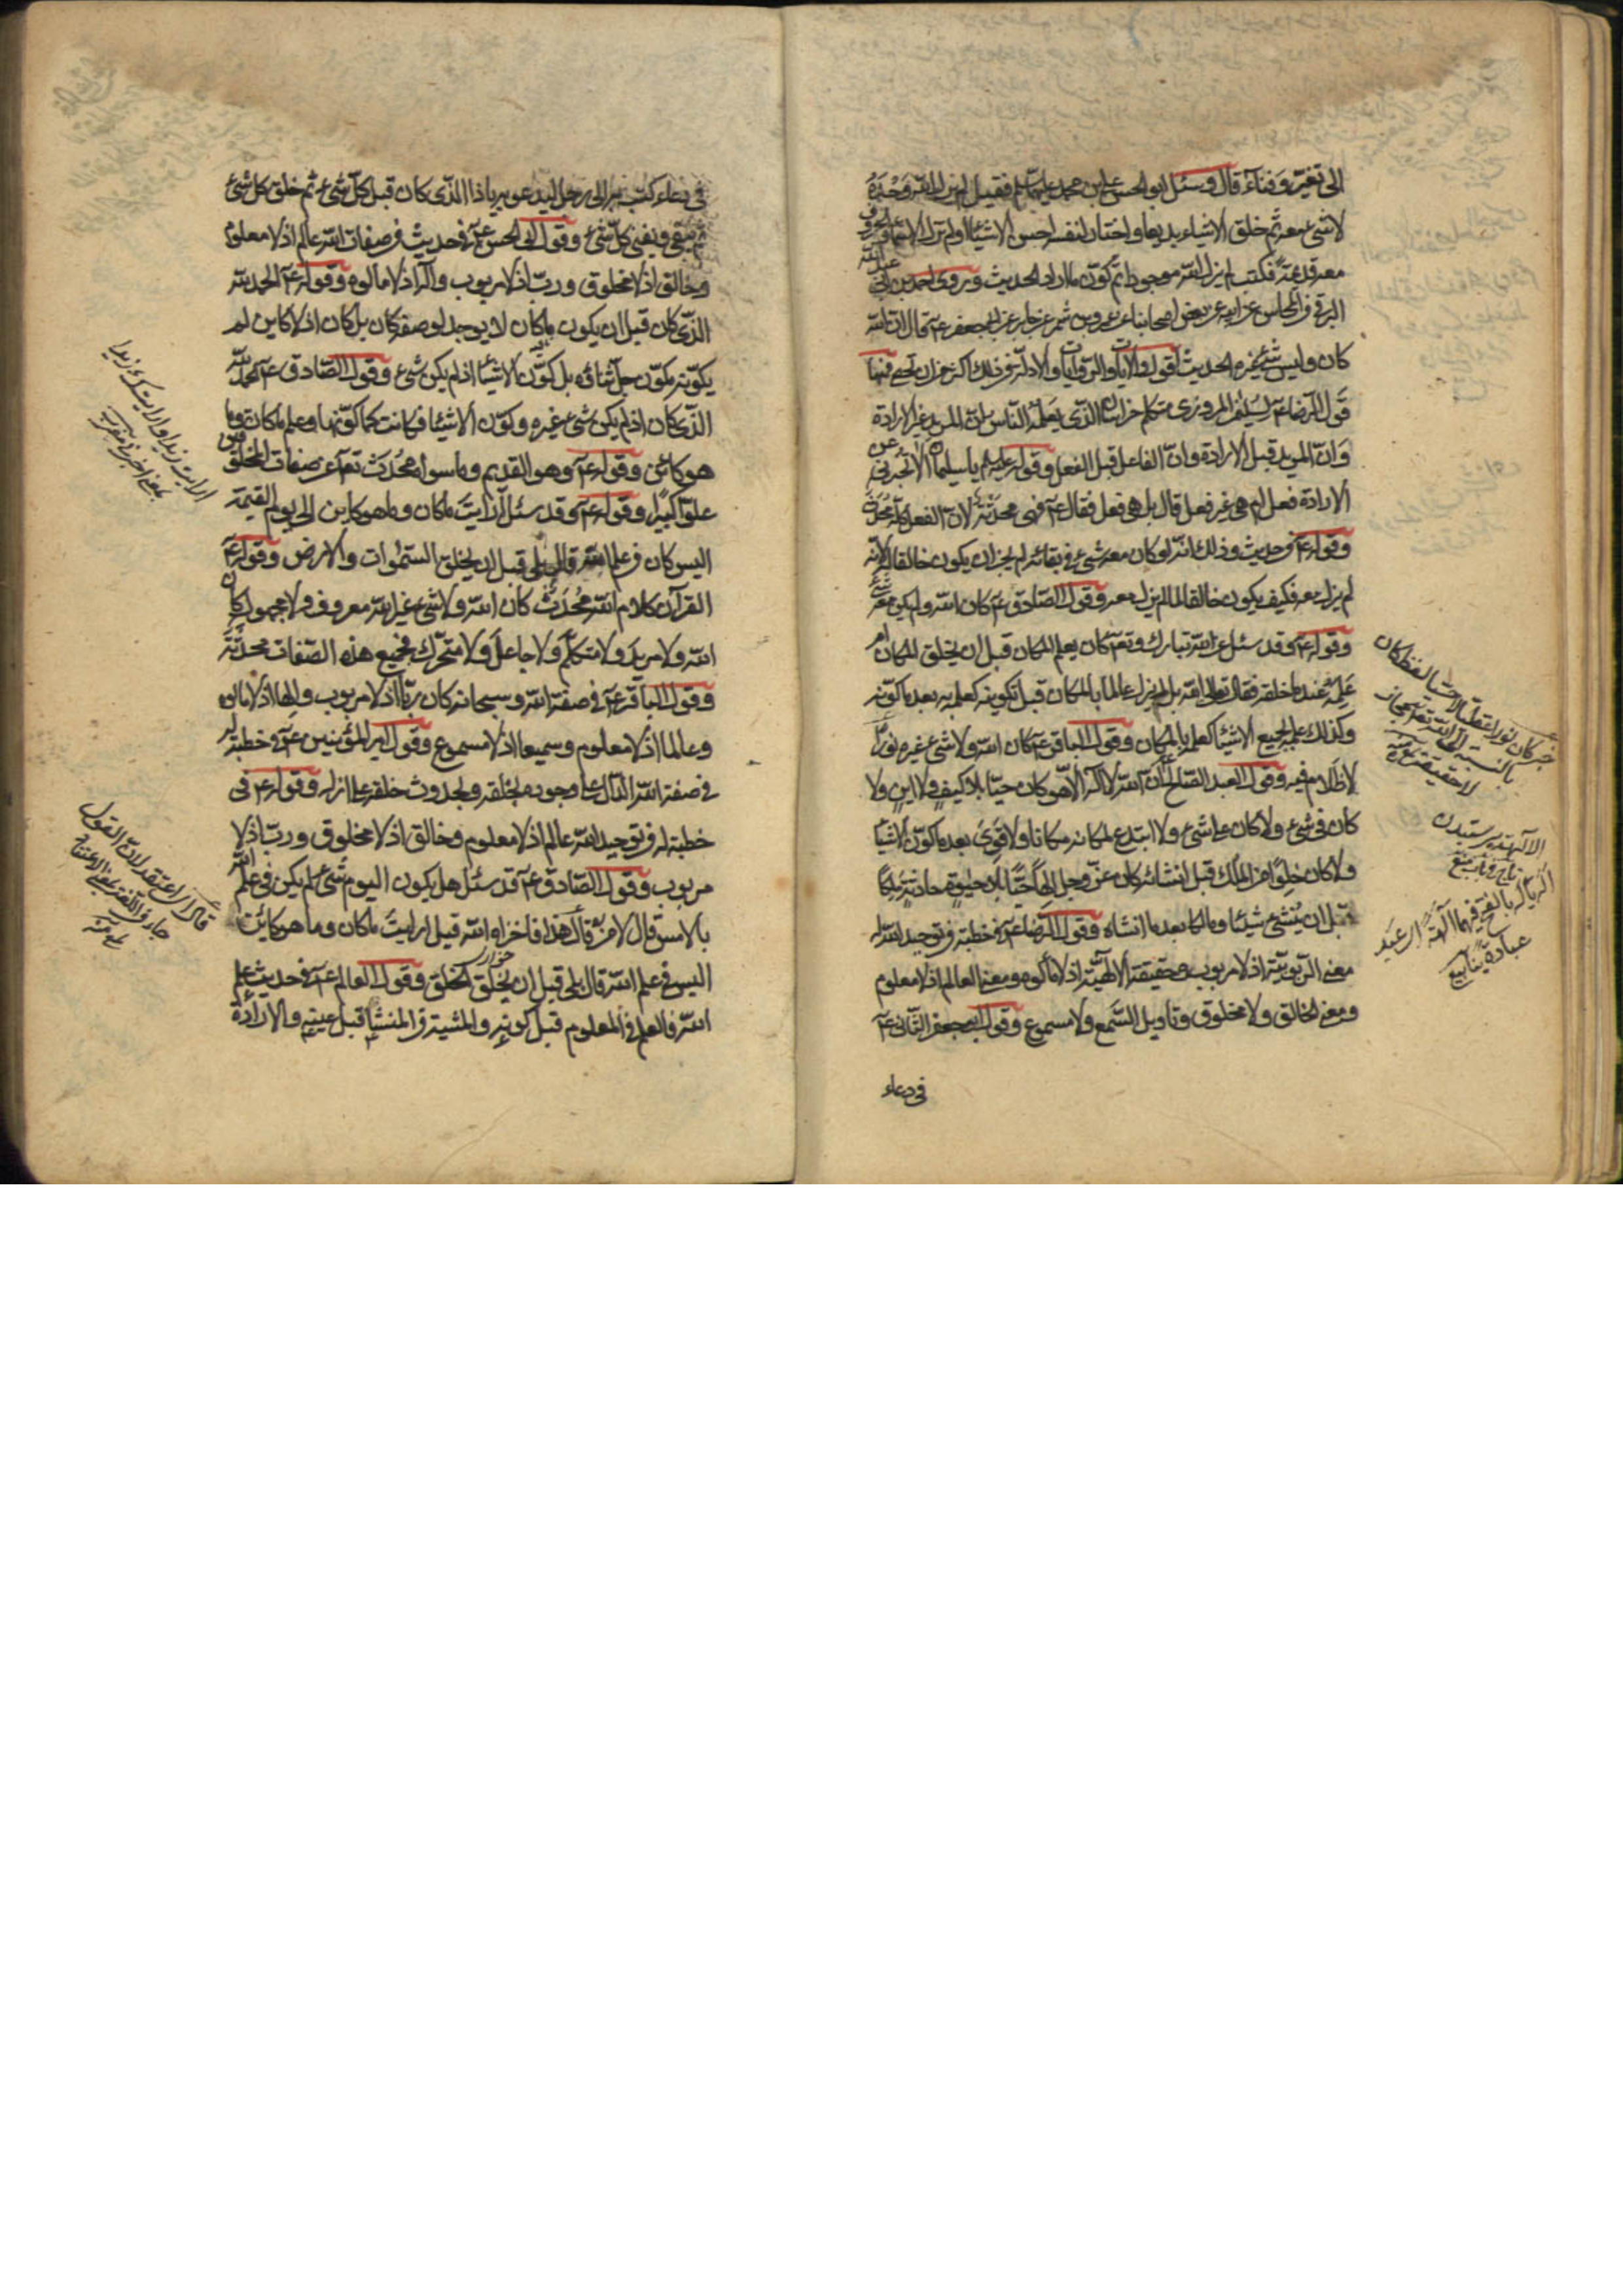 الى تغيّر وفناء قال وسئل ابو الحسن علي بن محمد عليهما السلم فقيل لم يزل الله وحده
لا شيء معه ثم خلق الاشياء بديعا واختار لنفسه احسن الاسماء ولم تزل الاسماء والحروف
معه قديمة فكتب لم يزل الله موجودا ثم كوّن ما اراد الحديث وروى احمد بن ابي عبد الله
البرقي في المحاسن عن ابيه عن بعض اصحابنا عن عمرو بن شمر عن جابر عن ابي جعفر ع قال ان الله
كان وليس شيء غيره الحديث اقول والآيات والروايات والادلة في ذلك اكثر من ان تحصى فمنها
قول الرضا ع لسليمن المروزي متكلم خراسان الذي يعلمه الناس ان المريد غير الارادة
وان المريد قبل الارادة وان الفاعل قبل الفعل وقوله عليه لم يا سليمان الا تخبرني عن
الارادة فعل ام هي غير فعل قال بل هي فعل فقال ع فهي محدثة لان الفعل كله محدث
وقوله ع في حديث وذلك انه لو كان معه شيء في بقائه لم يجز ان يكون خالقا له لانه
لم يزل معه فكيف يكون خالقا لما لم يزل معه وقول الصادق ع كان الله ولم يكن معه شيء
وقوله ع وقد سئل عن الله تبارك وتع كان يعلم المكان قبل ان يخلق المكان ام
علمه عند ما خلقه فقال تعالى الله بل لم يزل عالما بالمكان قبل تكوينه كعلمه به بعد ما كونه
وكذلك علمه بجميع الاشياء كعلمه بالمكان وقول الباقر ع كان الله ولا شيء غيره نورا
لا ظلام فيه وقول العبد الصالح ع ان الله لا اله الا هو كان حيّا بلا كيف ولا اين ولا
كان في شيء ولا كان على شيء ولا ابتدع لمكانه مكانا ولا قوي بعد ما كوّن الاشياء
ولا كان خلوا من الملك قبل انشائه كان عز وجل الها حيّا بلا حيوة حادثة ملكا
قبل ان ينشئ شيئا ومالكا بعد ما انشاه وقول الرضا ع في خطبته في توحيد الله له
معنى الربوبية اذ لا مربوب وحقيقة الالهية اذ لا مألوه ومعنى العالم اذ لا معلوم
ومعنى الخالق ولا مخلوق وتأويل السمع ولا مسموع وقول ابي جعفر الثاني ع
في دعاء
خبر كان نورا
بالنسبة الى الله تع مجاز
لا حقيقة
الالهة پرستيدن
عبادة ينابيع
في دعاء كتب به الى رجل ليدعو به يا ذا الذي كان قبل كل شيء ثم خلق كل شيء
ثم يبقى ويفنى كل شيء وقول ابي الحسن ع في حديث في صفات الله عالم اذ لا معلوم
وخالق اذ لا مخلوق وربّ اذ لا مربوب واله اذ لا مالوه وقوله ع الحمد لله
الذي كان قبل ان يكون ما كان لا يوجد لوصفه كان بل كان اذ لا كاين لم
يكوّنه مكوّن جل ثنائه بل كوّن الاشياء اذ لم يكن شيء وقول الصادق ع الحمد لله
الذي كان اذ لم يكن شيء غيره وكوّن الاشياء فكانت كما كوّنها وعلم ما كان وما
هو كائن وقوله ع وهو القديم وما سواه محدث تعالى عن صفات المخلوقين
علوّا كبيرا وقوله ع وقد سئل أرأيت ما كان وما هو كاين الى يوم القيمة
اليس كان في علم الله قال بلى قبل ان يخلق السموات والارض وقوله ع
القرآن كلام الله محدث كان الله ولا شيء غير الله معروف ولا مجهول كان
الله ولا مريد ولا متكلم ولا جاعل ولا متحرك فجميع هذه الصفات محدثة
وقول الباقر ع في صفة الله وسبحانه كان ربّا اذ لا مربوب والها اذ لا مالوه
وعالما اذ لا معلوم وسميعا اذ لا مسموع وقول امير المؤمنين ع في خطبة له
في صفة الله الدال على وجوده بخلقه وبحدوث خلقه على ازله وقوله ع في
خطبة له في توحيد الله عالم اذ لا معلوم وخالق اذ لا مخلوق وربّ اذ لا
مربوب وقول الصادق ع قد سئل هل يكون اليوم شيء لم يكن في علم الله
بالامس قال لا من قال هذا فاخزاه الله قيل ارايت ما كان وما هو كائن
اليس في علم الله قال بلى قبل ان يخلق الخلق وقول العالم ع في حديث علم
الله فالعلم في المعلوم قبل كونه والمشية في المنشأ قبل عينه والارادة
ارايت زيدا
قال اي اعتقد لان القول
جاء في اللغة بمعنى الاعتقاد